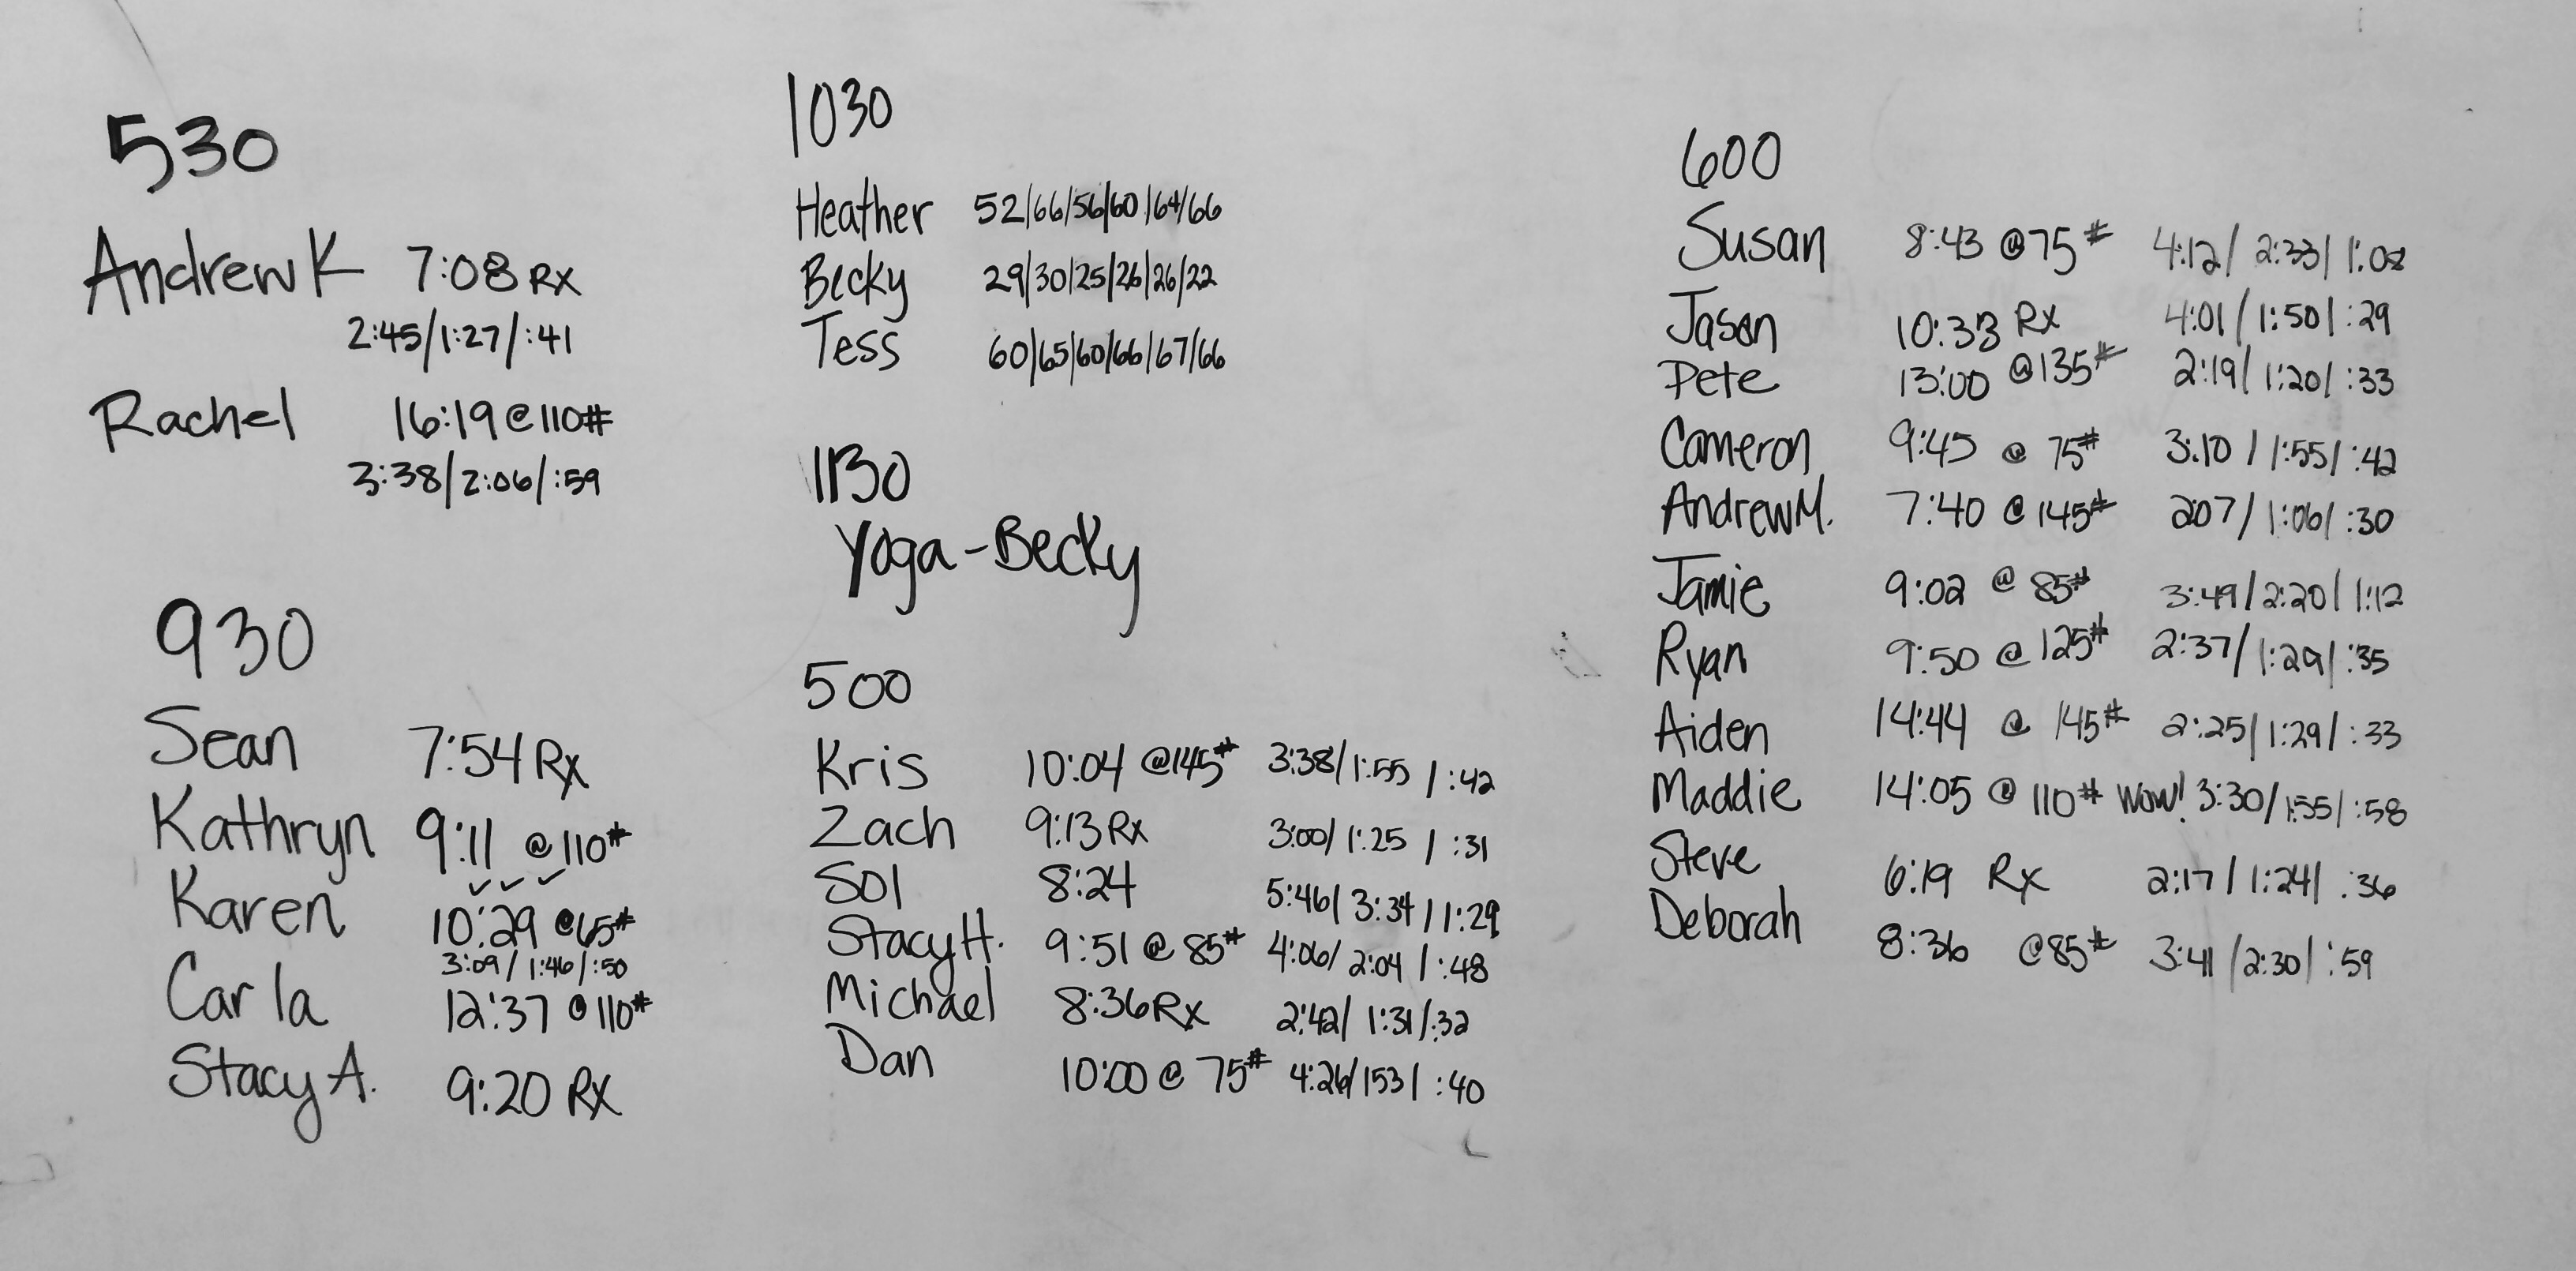 530
Andrew K 7:08 RX
2:45/1:27/:41
Rachel 16:19 @ 110#
3:38/2:06/:59
930
Sean 7:54 Rx
Kathryn 9:11 @ 110#
✓ ✓ ✓
Karen 10:29 @ 65#
3:09/1:46/:50
Carla 12:37 @ 110#
Stacy A. 9:20 RX
1030
Heather 52/66/56/60/64/66
Becky 29/30/25/26/26/22
Tess 60/65/60/66/67/66
1130
Yoga - Becky
500
Kris 10:04 @145# 3:38/1:55/:42
Zach 9:13 Rx 3:00/1:25/:31
Sol 8:24 5:46/3:34/1:29
Stacy H. 9:51 @ 85# 4:06/2:04/:48
Michael 8:36 Rx 2:42/1:31/:32
Dan 10:00 @ 75# 4:26/153/:40
600
Susan 8:43 @75# 4:12/2:33/1:02
Jason 10:33 Rx 4:01/1:50/:29
Pete 13:00 @135# 2:19/1:20/:33
Cameron 9:45 @ 75# 3:10/1:55/:42
Andrew M. 7:40 @ 145# 207/1:06/:30
Jamie 9:02 @ 85# 3:49/2:20/1:12
Ryan 9:50 @ 125# 2:37/1:29/:35
Aiden 14:44 @ 145# 2:25/1:29/:33
Maddie 14:05 @ 110# Wow! 3:30/1:55/:58
Steve 6:19 Rx 2:17/1:24/:36
Deborah 8:36 @85# 3:41/2:30/:59